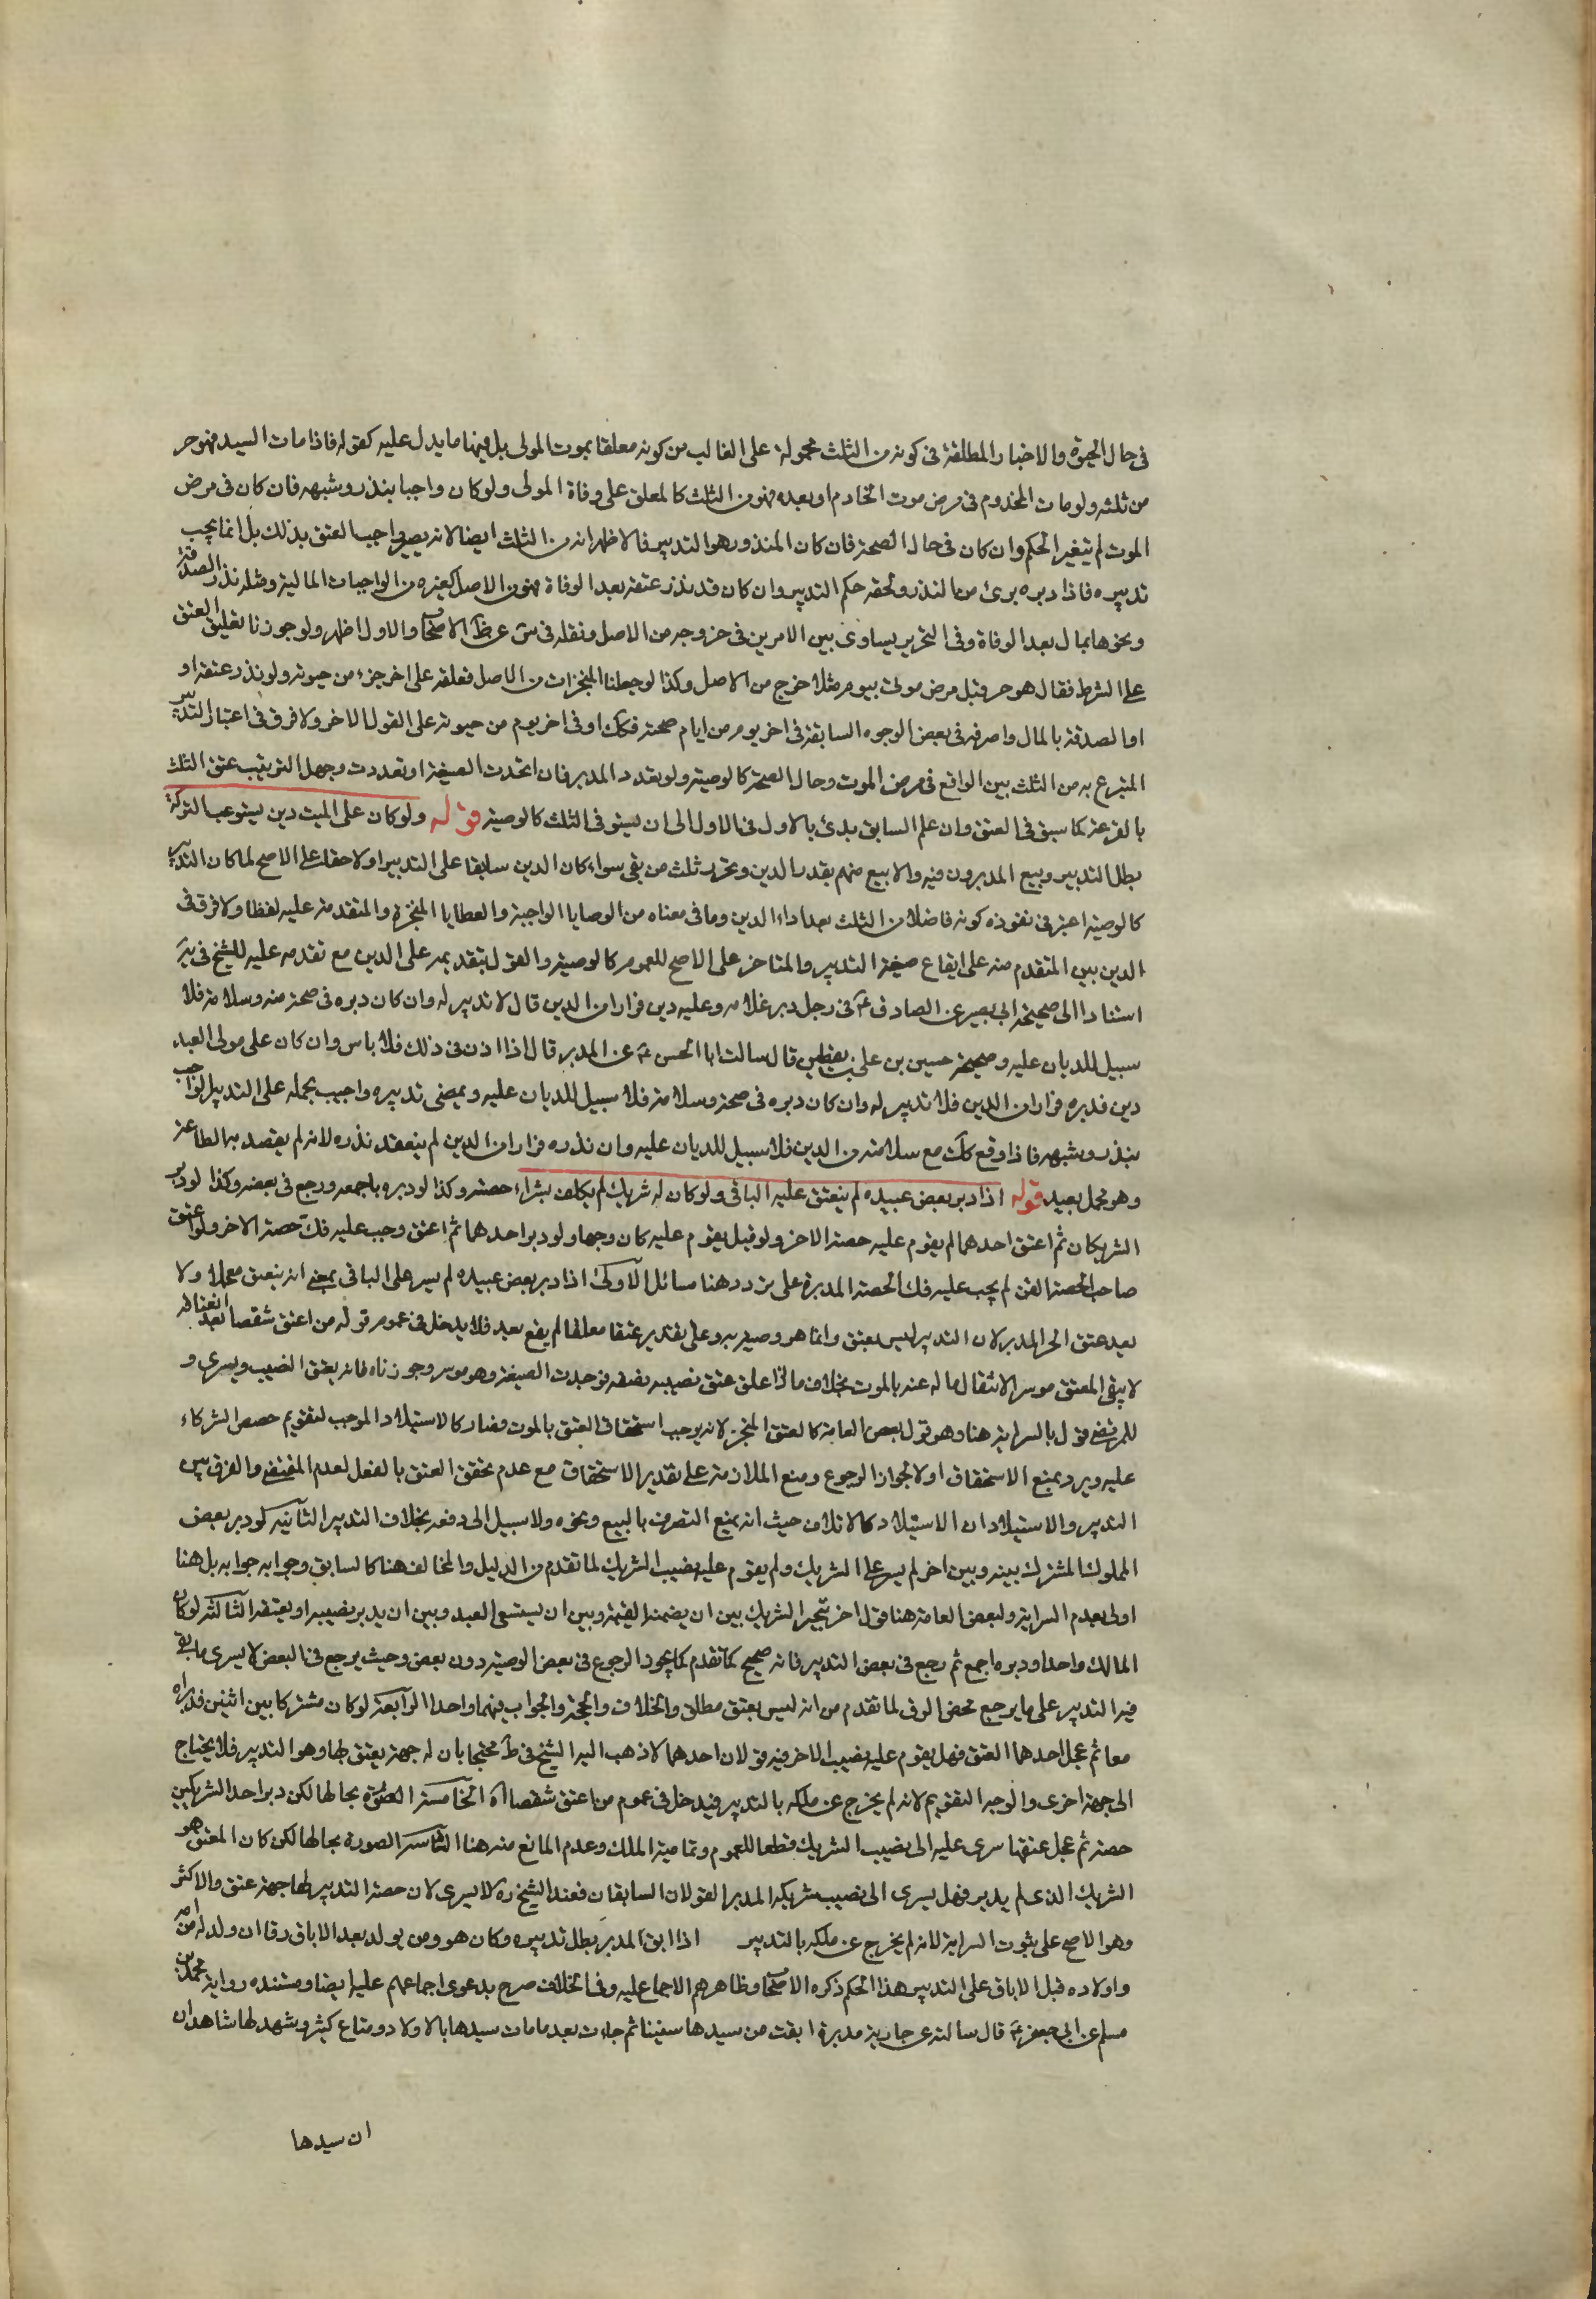 فى حال الحيوة والاخبار المطلقة فى كونه من الثلث محمولة على الغالب من كونه معلقا بموت المولى بل فيها ما يدل عليه كقوله فاذا مات السيد فهو حر
من ثلثه ولو مات المخدوم فى مرض موت الخادم او بعده فهو من الثلث كالمعلق على وفاة المولى ولو كان واجبا بنذر وشبهه فان كان فى مرض
الموت لم يتغير الحكم وان كان فى حال الصحة فان كان المنذور هو التدبير فالاظهر انه من الثلث ايضا لانه لا يصير واجب العتق بذلك بل انما يجب
تدبيره فاذا دبره برئ من النذر ولحقه حكم التدبير وان كان قد نذر عتقه بعد الوفاة فهو من الاصل كغيره من الواجبات المالية ومثله نذر الصدقة
ونحوها بمال بعد الوفاة وفى التحرير يساوى بين الامرين فى خروجه من الاصل ونقله فى س عن ظ الاصحاب والاول اظهر ولو جوزنا تعليق العتق
على الشرط فقال هو حر قبل مرض موتى بيوم مثلا خرج من الاصل وكذا لو جعلنا المنجزات من الاصل فعلقه على اخر جزء من حيوته ولو نذر عتقه او
او الصدقة بالمال واصرفه فى بعض الوجوه السابقة فى اخر يوم من ايام صحته فكك او فى اخر يوم من حيوته على القول الاخر ولا فرق فى اعتبار التدبير
المتبرع به من الثلث بين الواقع فى مرض الموت وحال الصحة كالوصية ولو تعدد المدبر فان اتحدت الصيغة او تعددت وجهل الترتيب عتق الثلث
بالقرعة كما سبق فى العتق وان علم السابق بدئ بالاول فالاول الى ان يستوفى الثلث كالوصية قوله ولو كان على الميت دين يستوعب التركة
بطل التدبير وبيع المدبرون فيه والا بيع منهم بقدر الدين وتحرر ثلث من بقى سواء كان الدين سابقا على التدبير او لاحقا على الاصح لما كان التدبير
كالوصية اعتبر فى نفوذه كونه فاضلا من الثلث بعد اداء الدين وما فى معناه من الوصايا الواجبة والعطايا المنجزة والمتقدمة عليه لفظا ولا فرق فى
الدين بين المتقدم منه على ايقاع صيغة التدبير والمتاخر على الاصح للعموم كالوصية والقول بتقديمه على الدين مع تقدمه عليه للشيخ فى يه
استنادا الى صحيحة ابى بصير عن الصادق ع فى رجل دبر غلامه وعليه دين فرارا من الدين قال لا تدبير له وان كان دبره فى صحة منه وسلامة فلا
سبيل للديان عليه وصحيحة حسين بن على بن يقطين قال سالت ابا الحسن ع عن المدبر قال اذا اذن فى ذلك فلا باس وان كان على مولى العبد
دين فدبره فرارا من الدين فلا تدبير له وان كان دبره فى صحة وسلامة فلا سبيل للديان عليه ويمضى تدبيره واجيب بحمله على التدبير الواجب
بنذر وشبهه فاذا وقع كك مع سلامته من الدين فلا سبيل للديان عليه وان نذره فرارا من الدين لم ينعقد نذره لانه لم يقصد به الطاعة
وهو محمل بعيد قوله اذا دبر بعض عبيده لم ينعتق عليه الباقى ولو كان له شريك لم يكلف بشراء حصته وكذا لو دبره باجمعه ورجع فى بعضه وكذا لو دبر
الشريكان ثم اعتق احدهما لم يقوم عليه حصة الاخر ولو قيل يقوم عليه كان وجها ولو دبر احدهما ثم اعتق وجب عليه فك حصة الاخر ولو اعتق
صاحب الحصة القن لم يجب عليه فك الحصة المدبرة على تردد هنا مسائل الاولى اذا دبر بعض عبيده لم يسر على الباقى بمعنى انه ينعتق معجلا ولا
بعد عتق الجزء المدبر لان التدبير ليس بعتق وانما هو وصية به وعلى تقدير عتقا معلقا لم يقع بعد فلا يدخل فى عموم قوله من اعتق شقصا بعد انعتاقه
لا يبقى المعتق موسرا لانتقال ماله عنه بالموت بخلاف ما اذا علق عتق نصيبه بصفة فوجدت الصيغة وهو موسر وجوزناه فانه يعتق النصيب ويسرى و
للمرتضى قول بالسراية هنا وهو قول بعض العامة كالعتق المنجز لانه يوجب استحقاق العتق بالموت فصار كالاستيلاد الموجب لتقويم حصص الشركاء
عليه ويرد بمنع الاستحقاق اولا لجواز الرجوع ومنع الملازمة على تقدير الاستحقاق مع عدم تحقق العتق بالفعل لعدم المقتضى والفرق بين
التدبير والاستيلاد ان الاستيلاد كالاتلاف حيث انه يمنع التصرف بالبيع ونحوه ولا سبيل الى دفعه بخلاف التدبير الثانية لو دبر بعض
المملوك المشترك بينه وبين اخر لم يسر على الشريك ولم يقوم عليه نصيب الشريك لما تقدم من الدليل والمخالف هنا كالسابق وجوابه جوابه بل هنا
اولى بعدم السراية ولبعض العامة هنا قول اخر بتخير الشريك بين ان يضمنه القيمة وبين ان يستسعى العبد وبين ان يدبر نصيبه او يعتقه الثالثة لو كان
المالك واحدا ودبره اجمع ثم رجع فى بعض التدبير فانه صحيح كما تقدم كما يجوز الرجوع فى بعض الوصية دون بعض وحيث يرجع فى البعض لا يسرى ما بقى
فيه التدبير على ما يرجع محض الرق لما تقدم من انه ليس بعتق مطلق والخلاف والحجة والجواب فيهما واحد الرابعة لو كان مشتركا بين اثنين فدبراه
معا ثم عجل احدهما العتق فهل يقوم عليه نصيب الاخر فيه قولان احدهما لا ذهب اليه الشيخ فى ط محتجا بان له جهة يعتق بها وهو التدبير فلا يحتاج
الى جهة اخرى والوجه التقويم لانه لم يخرج عن ملكه بالتدبير فيدخل فى عموم من اعتق شقصا اه الخامسة الصورة بحالها لكن دبر احد الشريكين
حصته ثم عجل عتقها سرى عليه الى نصيب الشريك قطعا للعموم وتمامية الملك وعدم المانع منه هنا السادسة الصورة بحالها لكن كان المعتق هو
الشريك الذى لم يدبر فهل يسرى الى نصيب شريكه المدبر القولان السابقان فعند الشيخ ره لا يسرى لان حصة التدبير لها جهة عتق والاكثر
وهو الاصح على ثبوت السراية لانه لم يخرج عن ملكه بالتدبير اذا ابق المدبر بطل تدبيره وكان هو ومن يولد بعد الاباق رقا ان ولد له من امة
واولاده قبل الاباق على التدبير هذا الحكم ذكره الاصحاب وظاهرهم الاجماع عليه وفى الخلاف صرح بدعوى اجماعهم عليه ايضا ومستنده رواية محمد بن
مسلم عن ابى جعفر ع قال سالته عن جارية مدبرة ابقت من سيدها سنينا ثم جاءت بعد ما مات سيدها بالاولاد ومتاع كثير وشهد لها شاهدان
ان سيدها